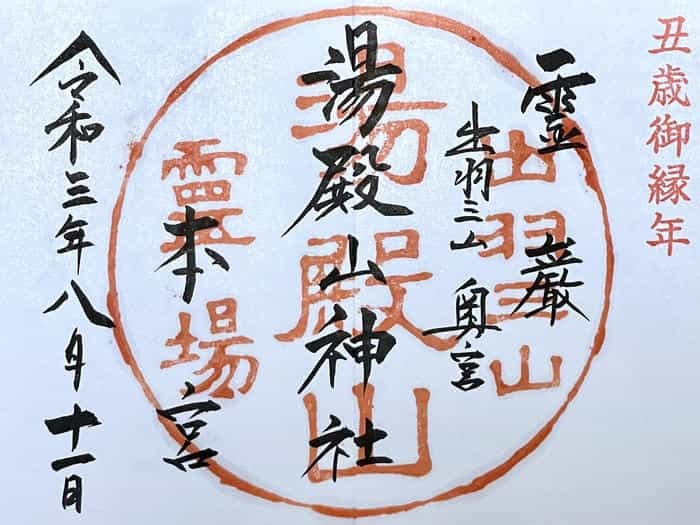 丑歳御縁年
霊巌
出羽三山 奥宮
湯殿山神社
本宮
令和三年八月十一日
出羽三山
湯殿山
霊場